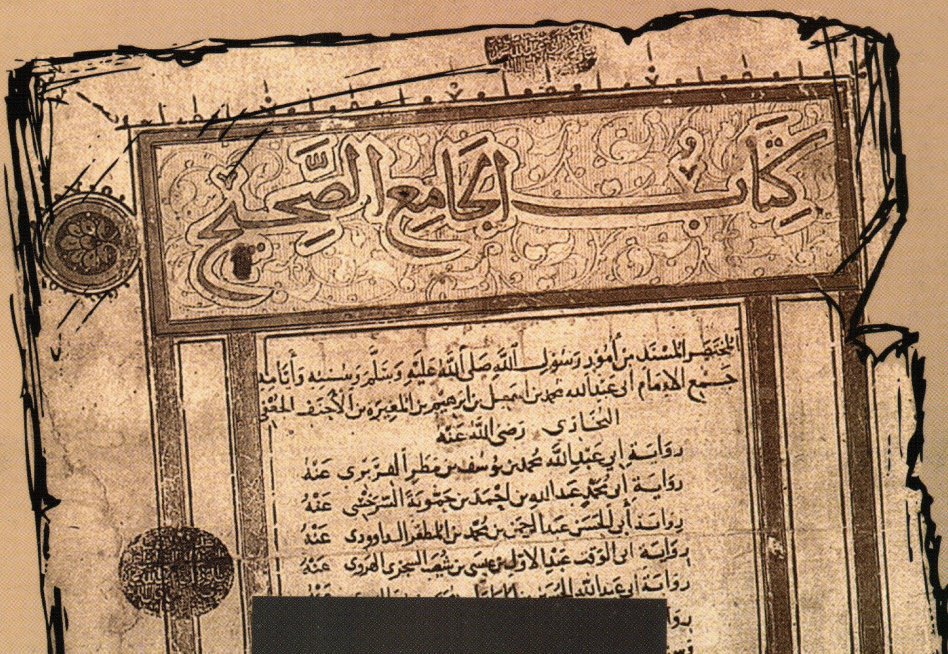 كتاب الجامع الصحيح
المختصر المسند من أمور رسول الله صلى الله عليه وسلم وسننه وأيامه
جمع الإمام أبي عبد الله محمد بن إسمعيل بن إبرهيم بن المغيرة بن الأحنف الجعفي
البخاري رضي الله عنه
رواية أبي عبد الله محمد بن يوسف بن مطر الفربري عنه
رواية أبي محمد عبد الله بن أحمد بن حموية السرخسي عنه
رواية أبي الحسن عبد الرحمن بن محمد بن المظفر الداوودي عنه
رواية أبي الوقت عبد الأول بن عيسى بن شعيب السجزي الهروي عنه
رواية أبي عبد الله الحسين بن